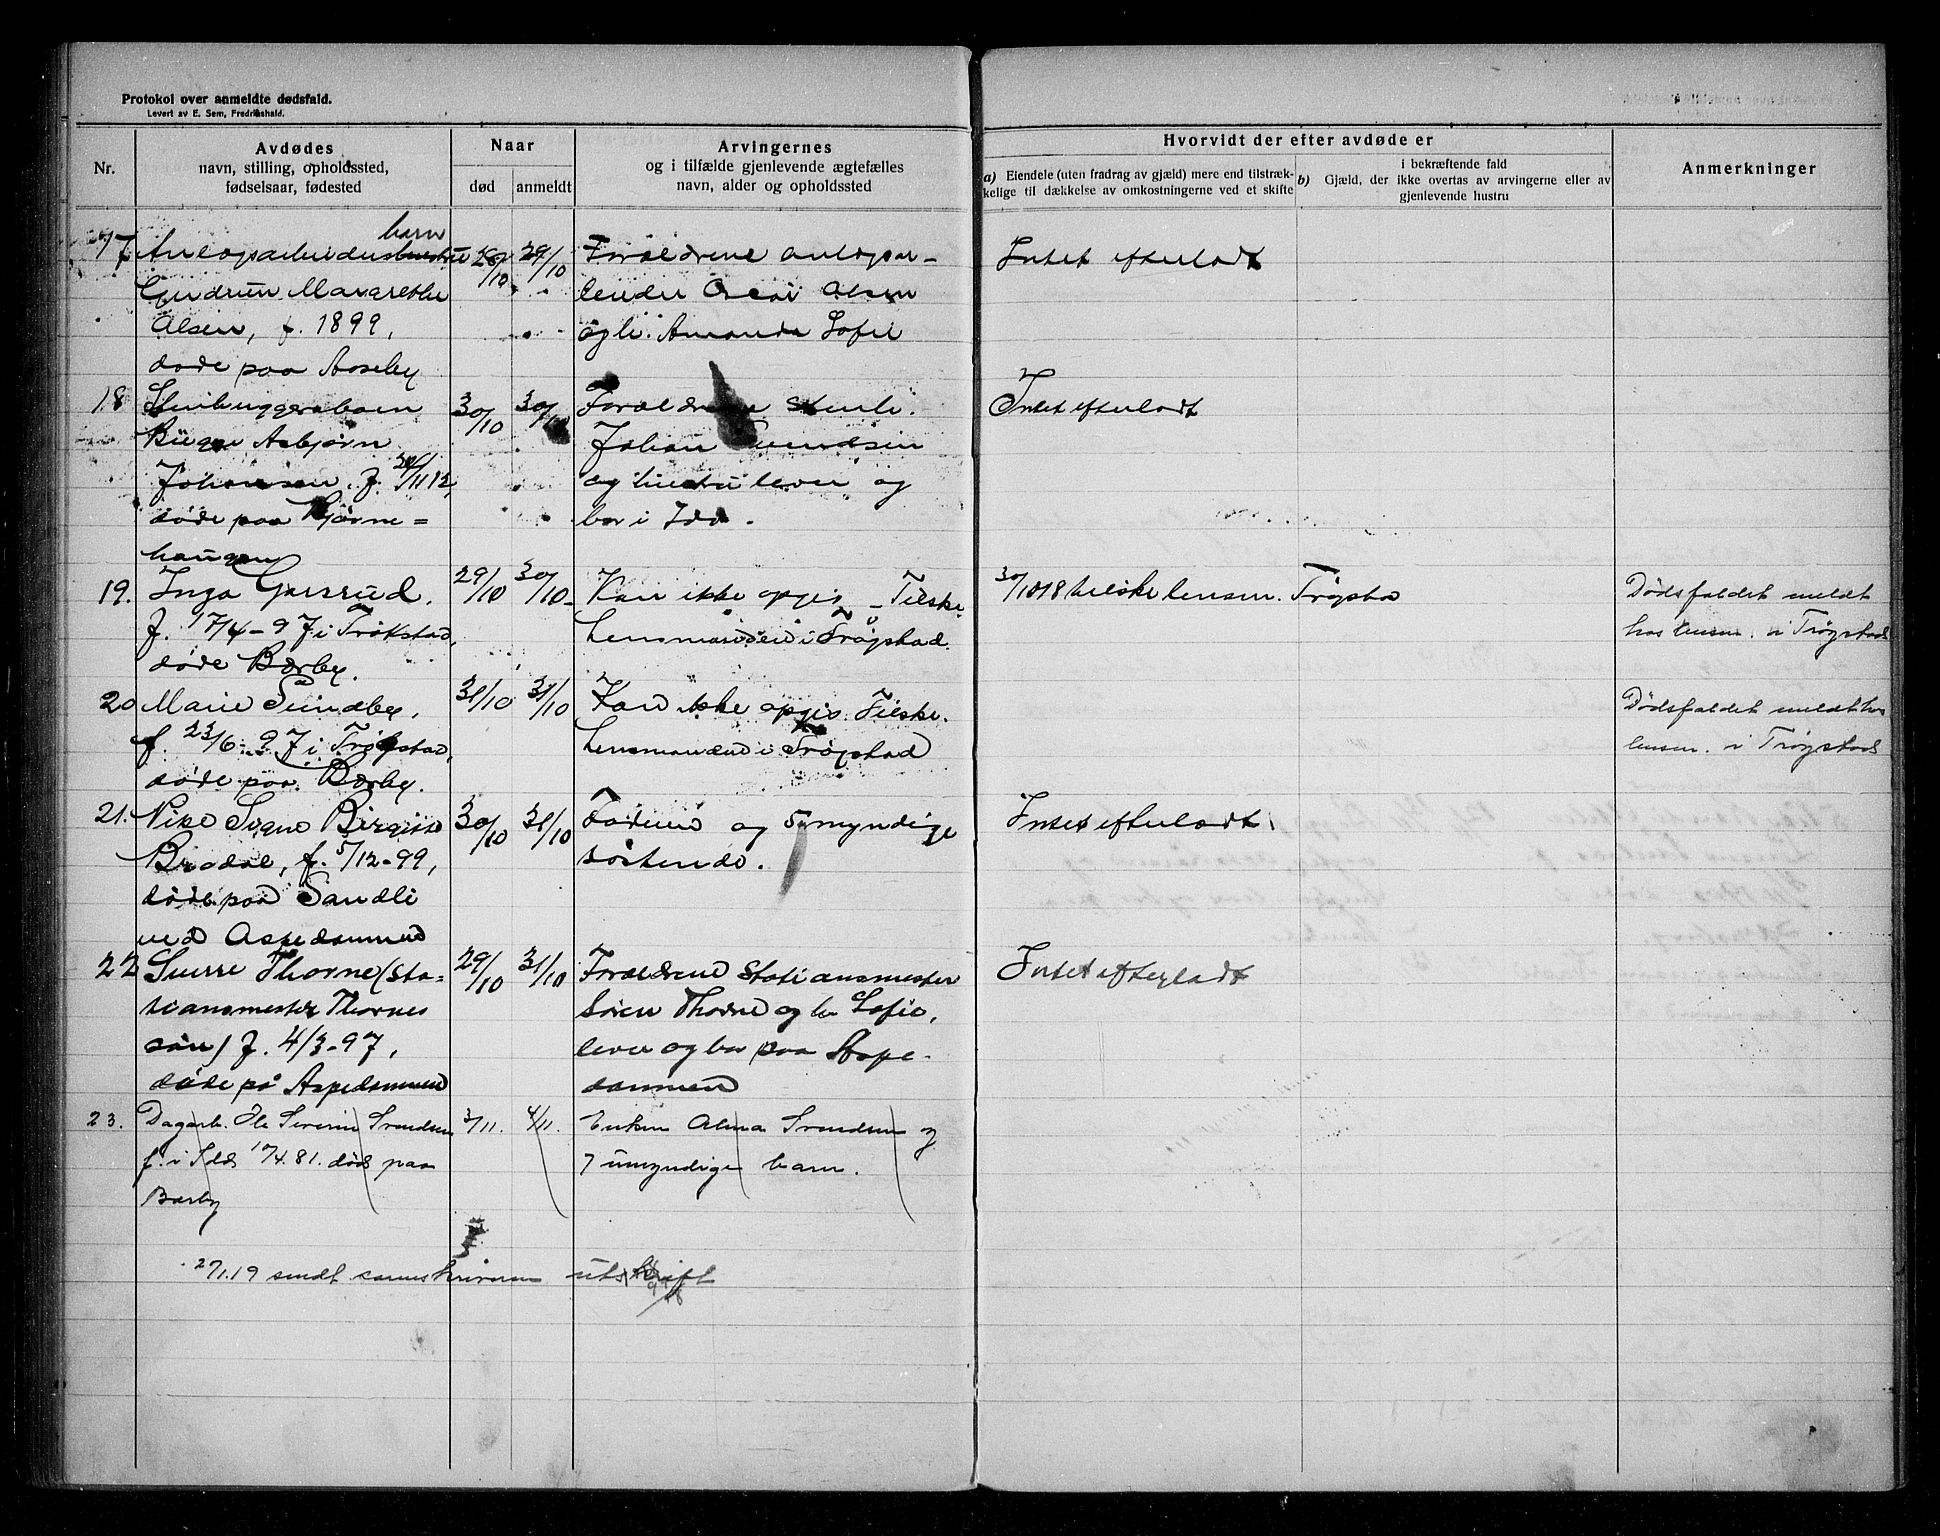 Protokol over anmeldte dødsfald.
Levert av E. Sem, Fredrikshald.
Nr.
Avdødes
navn, stilling, opholdssted,
fødselsaar, fødested
Naar
død
anmeldt
Arvingernes
og i tilfælde gjenlevende ægtefælles
navn, alder og opholdssted
Hvorvidt der efter avdøde er
a) Eiendele (uten fradrag av gjæld) mere end tilstræk-
kelige til dækkelse av omkostningerne ved et skifte
i bekræftende fald
b) Gjæld, der ikke overtas av arvingerne eller av
gjenlevende hustru
Anmerkninger
17
barn
Anlægsarbeiders
Gudrun Margrethe
Olsen, f. 1899,
døde paa Aaseby
28/10
29/10
Forældrene anlægsar-
beider Oscar Olsen
og h. Amanda Sofie
Intet efterladt
18
Stenhuggerabarn
Birger Asbjørn
Johansen. f. /11 12,
døde paa Bjørne=
haugen
30/10
30/10
Forældrene Stenh.
Johan Svendsen
og hustru lever og
bor i Idd.
Intet efterladt
19.
Inga Garsrud.
f. 17/4-97 i Trøkstad,
døde Bærby.
29/10
30/10
Kan ikke opgis - Tilske.
Lensmanden i Trøgstad.
30/10 18 tilske lensm. Trøgstad
Dødsfaldet meldt
hos lensm. i Trøgstad
20
Marie Sundby,
f. 23/6-97 i Trøgstad,
døde paa Bærby.
31/10
31/10
Kan ikke opgis. Tilske.
Lensmanden i Trøgstad
Dødsfaldet meldt hos
lensm. i Trøgstad
21.
Signe Birgitte
Brødal, f. 5/12-99,
døde paa Sandli
ved Aspedammen
30/10
31/10
Faderen og 5 myndige
søskende.
Intet efterladt.
22
Sverre Thorne (sta-
tionsmester Thornes
søn) f. 4/3-97,
døde på Aspedammen
29/10
31/10
Forældrene Stationsmester
Søren Thorne og h. Sofie,
lever og bor paa Aspe-
dammen
Intet efterladt
23.
Dagarb. Ole Severin Svendsen
f. i Idd 17/4.81. død paa
Bærby
3/11.
4/11.
Enken Alma Svendsen og
7 umyndige barn.
27/1.19 sendt sorenskriveren utskrift